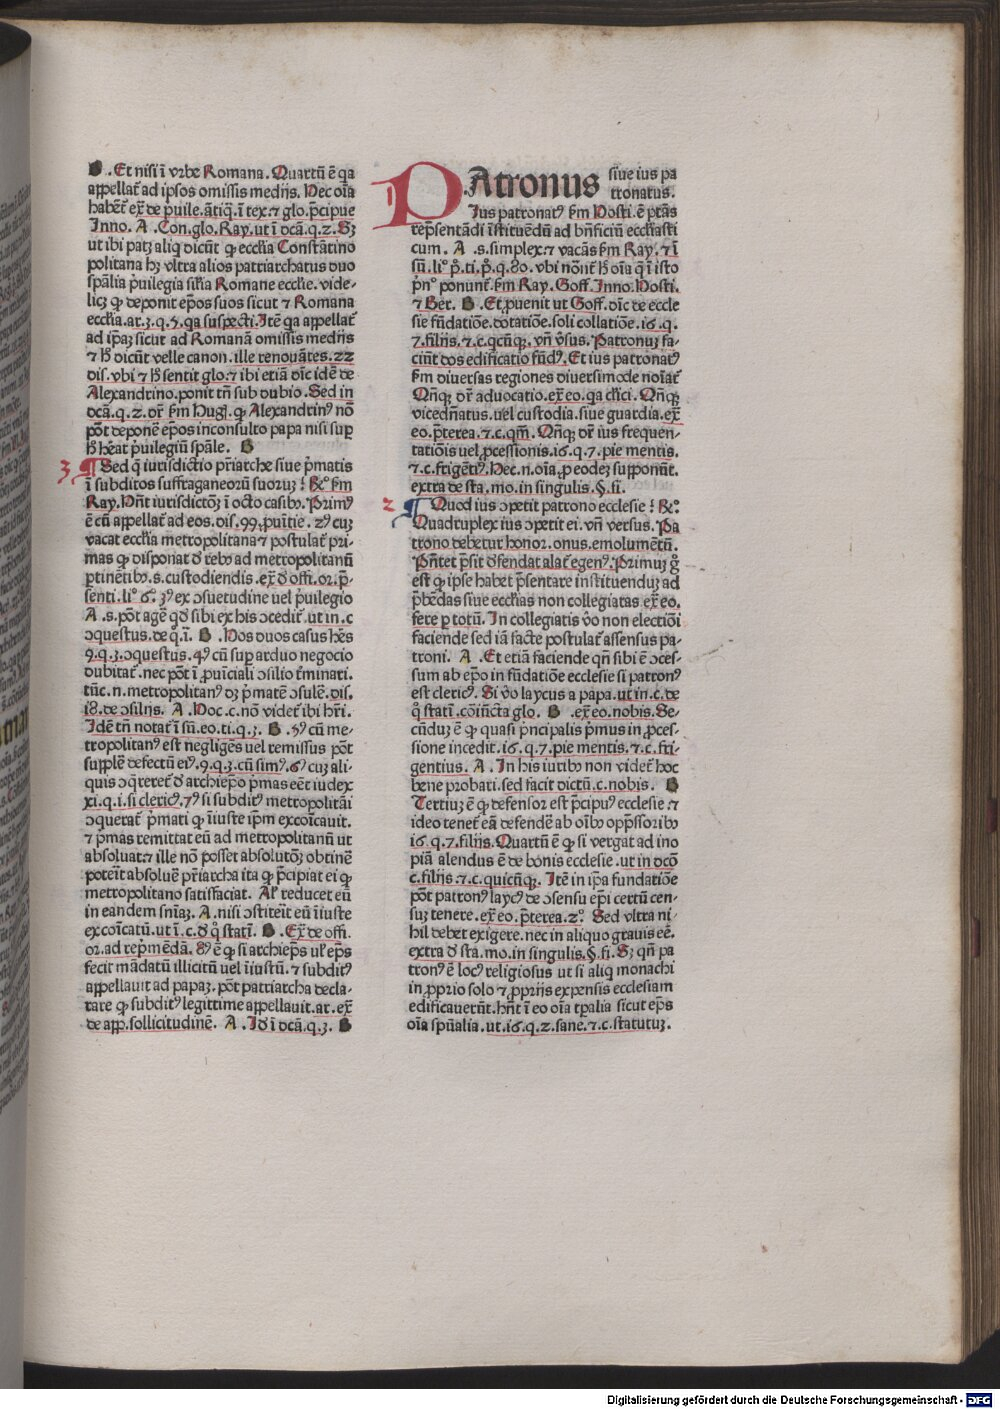 B .Et nisi ī vrbe Romana. Quartū ē qa
appellat᷑ ad ipsos omissis medijs. Nec oīa
habēt ex̄ de p̱uile. ātiq̄. ī tex. ⁊ glo. p̄cipue
Inno. A .Con. glo. Ray. ut ī dcā. q. 2. Sꝫ
ut ibi patꝫ aliq̄ dicūt ꝙ eccłia Constātino
politana hꝫ vltra alios patriarchatus duo
spālia p̱uilegia silīa Romane ecclīe. vide-
licꝫ ꝙ deponit ep̄os suos sicut ⁊ Romana
eccłia. ar. 3. q. 5. qa suspecti. Itē qa appellat᷑
ad ip̄aꝫ sicut ad Romanā omissis medijs
⁊ h̄ dicūt velle canon. ille renouātes. 22
dis. vbi ⁊ h̄ sentit glo. ⁊ ibi etiā dīc idē de
Alexandrino. ponit tn̄ sub dubio. Sed in
dcā. q. 2. dr̄ ẜm Hug. ꝙ Alexandrinꝰ nō
pōt deponē ep̄os inconsulto papa nisi sup̱
h̄ hēat p̱uilegiū spāle. B
3 ¶ Sed q̄ iurisdictio pr̄iarche siue p̄matis
ī subditos suffraganeorū suoruꝫ? ℞º ẜm
Ray. Hn̄t iurisdictōꝫ ī octo casibꝰ. Primꝰ
ē cū appellat᷑ ad eos. dis. 99. ꝓuītie. 2ꝰ cuꝫ
vacat eccłia metropolitana ⁊ postulat᷑ pri-
mas ꝙ disponat d̄ rebꝰ ad metropolitanū
ꝑtinētibꝰ. s. custodiendis. ex̄ d̄ offi. or. p̄-
senti. liº 6. 3ꝰ ex ꝯsuetudine uel p̱uilegio
A .s. pōt agē qd̄ sibi ex his ꝯcedit᷑. ut in. c
ꝯquestus. de q. ī. B .Hos duos casus hēs
9. q. 3. ꝯquestus. 4ꝰ cū sup̱ arduo negocio
dubitat᷑. nec pōt ī ꝓuīciali ꝯsilio t᷑minari.
tūc. n. metropolitanꝰ dꝫ p̄matē ꝯsulē. dis.
18. de ꝯsilijs. A .Hoc. c. nō videt᷑ ibi hr̄i.
Idē tn̄ notat᷑ ī sū. eo. ti. q. 3. B .5ꝰ cū me-
tropolitanꝰ est negligēs uel remissus pōt
supplē defectū eiꝰ. 9. q. 3. cū simꝰ. 6ꝰ cuꝫ ali-
quis ꝯq̄reret᷑ d̄ archiep̄o p̄mas eēt iudex
xi. q. i. si clericꝰ. 7ꝰ si subditꝰ metropolitāi
ꝯquerat᷑ p̄mati ꝙ īiuste ip̄m excoīcauit.
⁊ p̄mas remittat eū ad metropolitanū ut
absoluat. ⁊ ille nō posset absolutōꝫ obtinē
potēt absoluē pr̄iarcha ita ꝙ p̄cipiat ei ꝙ
metropolitano satisfaciat. Alr̄ reducet eū
in eandem sn̄iaꝫ. A .nisi ꝯstiterit eū īiuste
excoīcatū. ut ī. c. d̄ q̄ statī. B .Ex̄ de offi.
or. ad rep̄mēdā. 8ꝰ ē ꝙ si archiep̄s uꝉ ep̄s
fecit mādatū illicitū uel īiustū. ⁊ subditꝰ
appellauit ad papaꝫ. pōt patriarcha decla-
rare ꝙ subditꝰ legittime appellauit. ar. ex̄
de app̱. sollicitudinē. A .Id ī dcā. q. 3. B
PAtronus siue ius pa
tronatus.
Ius patronatꝰ ẜm Hosti. ē ptās
rep̄sentādi īstituēdū ad bn̄ficiū ecclīasti
cum. A .s. simplex. ⁊ vacās ẜm Ray. ⁊ ī
sū. liº p̄. ti. p̄. q. 80. vbi nōnt᷑ h̄ oīa q̄ ī isto
p̄nº ponunt᷑. ẜm Ray. Goff. Inno. Hosti.
⁊ Ber. B .Et ꝓuenit ut Goff. dīc de eccle
sie fūdatiōe. dotatiōe. soli collatiōe. 16. q.
7. filijs. ⁊. c. qcūqꝫ. vn̄ v̄sus. Patronuꝫ fa-
ciūt dos edificatio fūdꝰ. Et ius patronatꝰ
ẜm diuersas regiones diuersimode noīat᷑
Qn̄qꝫ dr̄ aduocatio. ex̄. eo. qa clīci. Qn̄qꝫ
vicedn̄atus. uel custodia. siue guardia. ex̄
eo. p̄terea. ⁊. c. qm̄. Qn̄qꝫ dr̄ ius frequen-
tatiōis uel ꝓcessionis. 16. q. 7. pie mentis.
⁊. c. frigētiꝰ. Hec. n. oīa. ꝓ eodeꝫ supponūt.
extra de sta. mo. in singulis. §. fi.
2 ¶ Quod ius ꝯpetit patrono ecclesie? ℞º.
Quadruplex ius ꝯpetit ei. vn̄ versus. Pa
trono debetur honor. onus. emolumētū.
Pn̄tet p̄sit d̄fendat alat᷑ egenꝰ. Primuꝫ gͦ
est ꝙ ipse habet p̄sentare instituenduꝫ ad
p̄bēdas siue eccłias non collegiatas ex̄. eo.
fere ꝑ totū. In collegiatis v̄o non electiōi
faciende sed iā facte postulat᷑ assensus pa-
troni. A .Et etiā faciende qn̄ sibi ē ꝯces-
sum ab ep̄o in fūdatiōe ecclesie si patronꝰ
est clericꝰ. Si v̄o laycus a papa. ut in. c. de
q̄ statī. cōiūcta glo. B .ex̄. eo. nobis. Se-
cūduꝫ ē ꝙ quasi p̄ncipalis p̄mus in ꝓces-
sione incedit. 16. q. 7. pie mentis. ⁊. c. fri-
gentius. A .In his iuribꝰ non videt᷑ hoc
bene probati. sed facit dictū. c. nobis. B
Tertiuꝫ ē ꝙ defensor est p̄cipuꝰ ecclesie. ⁊
ideo tenet᷑ eā defendē ab oībꝰ opp̄ssoribꝰ
16. q. 7. filijs. Quartū ē ꝙ si vergat ad ino
piā alendus ē de bonis ecclesie. ut in dcō
c. filijs. ⁊. c. quicūqꝫ. Itē in ip̄a fundatiōe
pōt patronꝰ laycꝰ de ꝯsensu ep̄i certū cen-
suꝫ tenere. ex̄. eo. p̄terea. 2º. Sed vltra ni-
hil debet exigere. nec in aliquo grauis eē.
extra d̄ sta. mo. in singulis. §. fi. Sꝫ qn̄ pa
tronꝰ ē locꝰ religiosus ut si aliq̄ monachi
in ꝓprio solo ⁊ ꝓprijs expensis ecclesiam
edificauerūt. hn̄t ī eo oīa tꝑalia sicut ep̄s
oīa spūalia. ut. 16. q. 2. sane. ⁊. c. statutuꝫ.
Digitalisierung gefördert durch die Deutsche Forschungsgemeinschaft - DFG